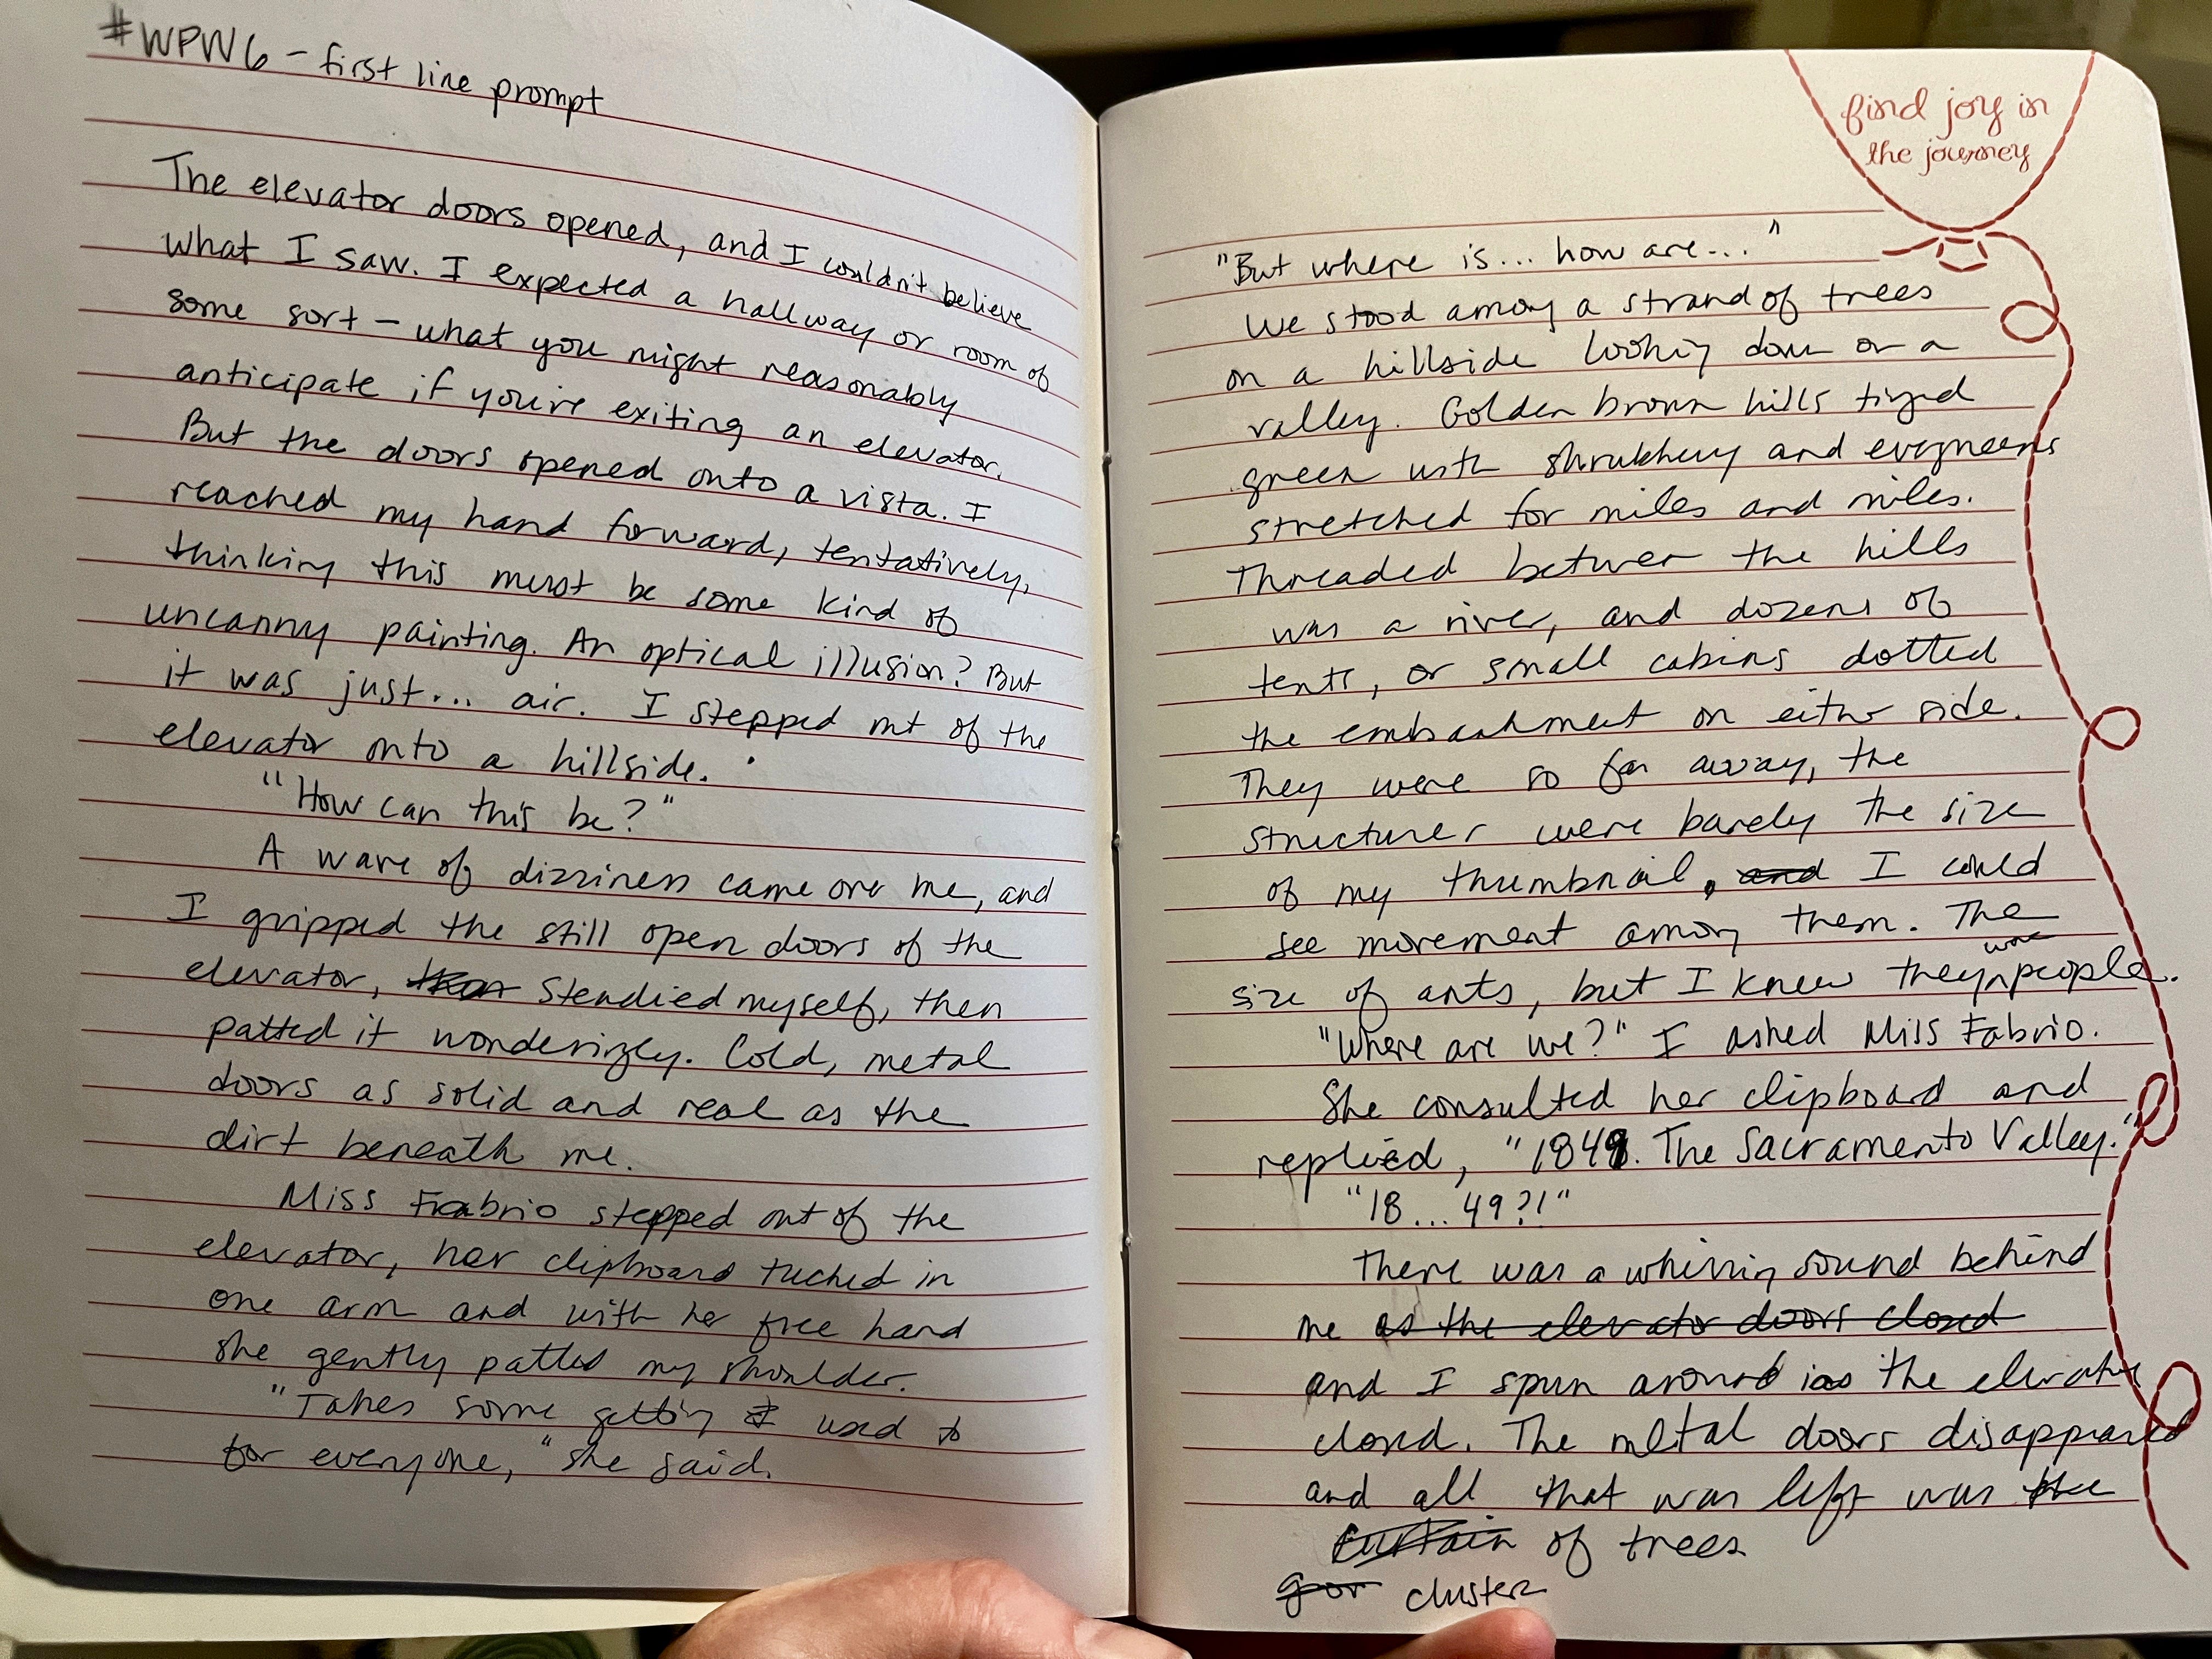 #WPW6 – first line prompt
The elevator doors opened, and I couldn't believe
what I saw. I expected a hallway or room of
some sort – what you might reasonably
anticipate if you're exiting an elevator.
But the doors opened onto a vista. I
reached my hand forward, tentatively,
thinking this must be some kind of
uncanny painting. An optical illusion? But
it was just... air. I stepped out of the
elevator onto a hillside.
"How can this be?"
A wave of dizziness came over me, and
I gripped the still open doors of the
elevator, steadied myself, then
patted it wonderingly. Cold, metal
doors as solid and real as the
dirt beneath me.
Miss Fabrio stepped out of the
elevator, her clipboard tucked in
one arm and with her free hand
she gently patted my shoulder.
"Takes some getting used to
for everyone," she said.
find joy in
the journey
"But where is... how are..."
We stood among a strand of trees
on a hillside looking down on a
valley. Golden brown hills tinged
green with shrubbery and evergreens
stretched for miles and miles.
Threaded between the hills
was a river, and dozens of
tents, or small cabins dotted
the embankment on either side.
They were so far away, the
structures were barely the size
of my thumbnail, and I could
see movement among them. The
size of ants, but I knew they were people.
"Where are we?" I asked Miss Fabrio.
She consulted her clipboard and
replied, "1849. The Sacramento Valley."
"18... 49?!"
There was a whirring sound behind
me as the elevator doors closed
and I spun around as the elevator
closed. The metal doors disappeared
and all that was left was the
curtain of trees
cluster